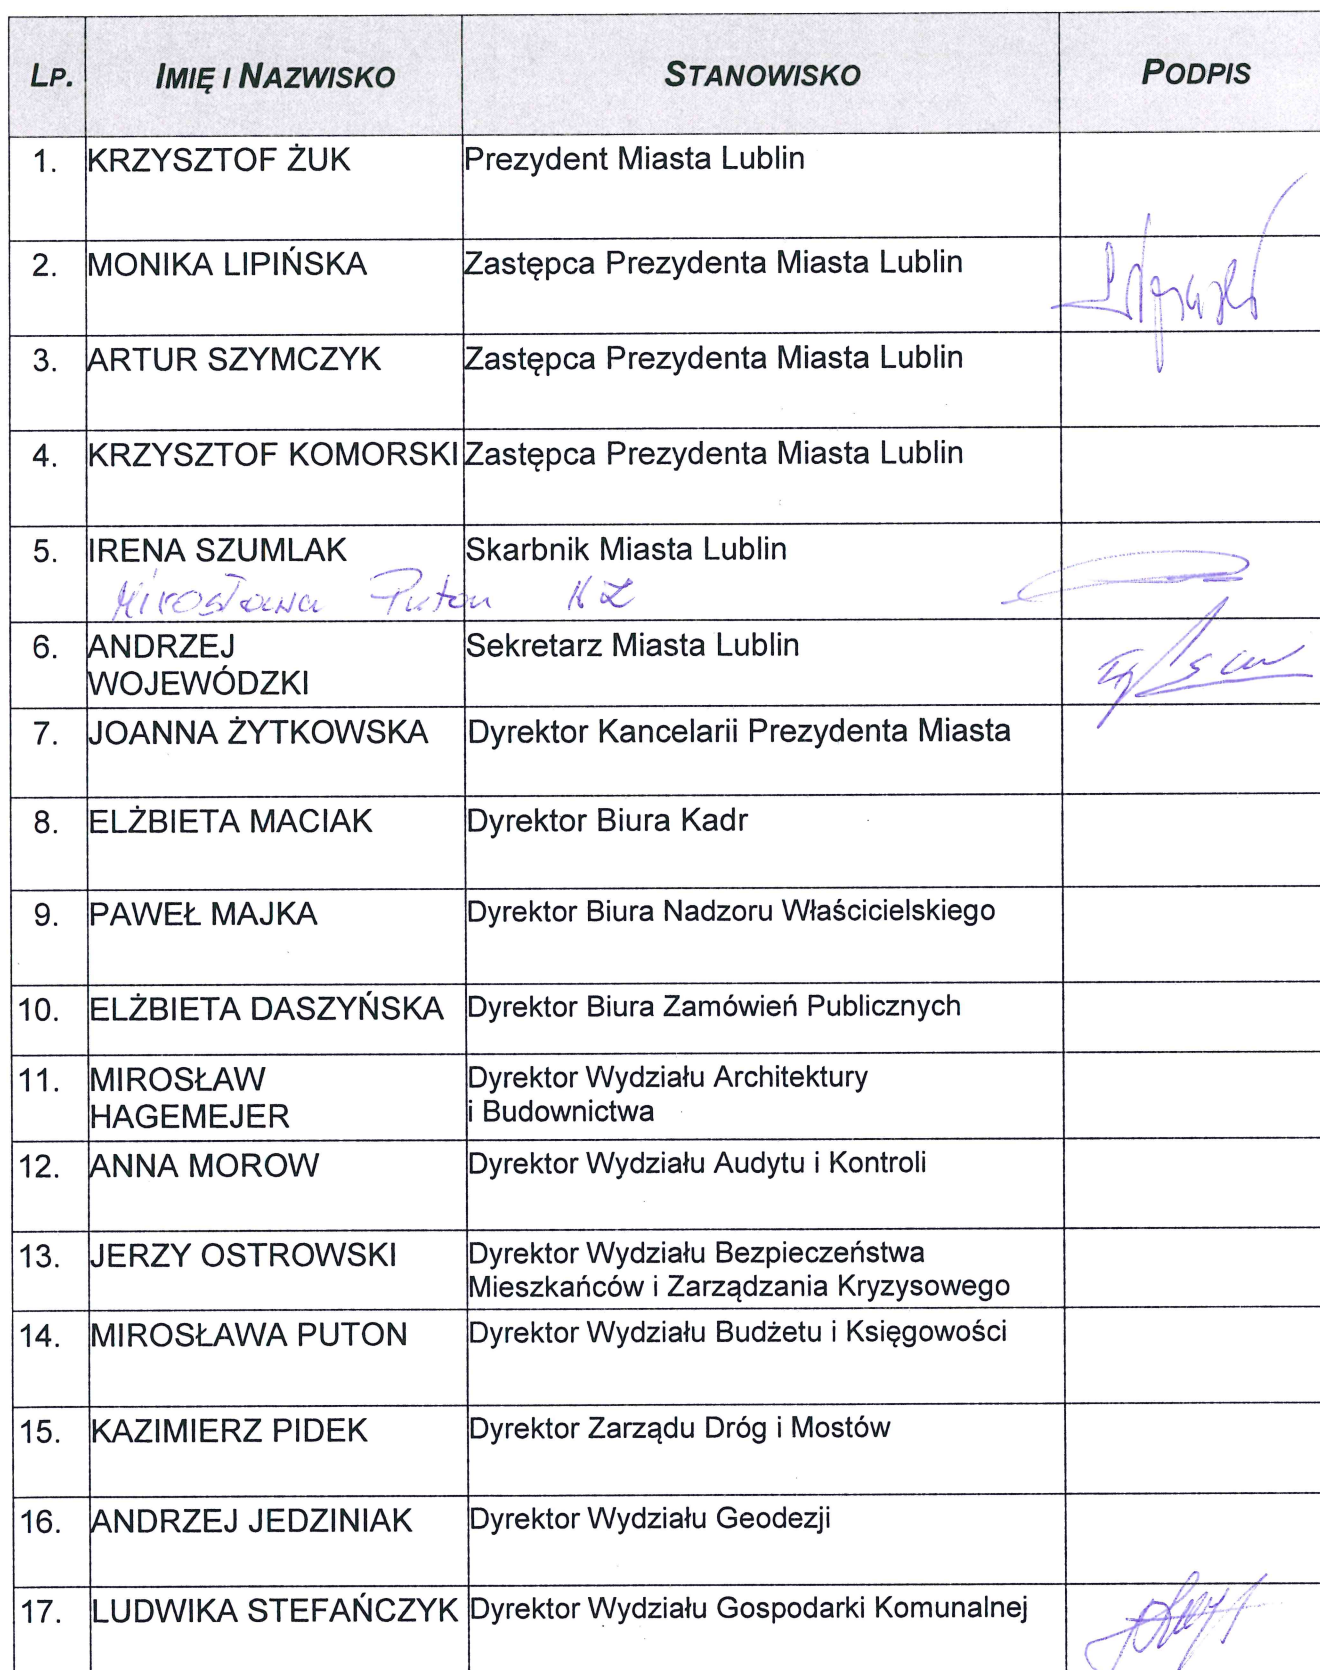 LP. IMIĘ I NAZWISKO STANOWISKO PODPIS
1. KRZYSZTOF ŻUK Prezydent Miasta Lublin
2. MONIKA LIPIŃSKA Zastępca Prezydenta Miasta Lublin
3. ARTUR SZYMCZYK Zastępca Prezydenta Miasta Lublin
4. KRZYSZTOF KOMORSKI Zastępca Prezydenta Miasta Lublin
5. IRENA SZUMLAK Skarbnik Miasta Lublin
Mirosława Puton
6. ANDRZEJ Sekretarz Miasta Lublin
WOJEWÓDZKI
7. JOANNA ŻYTKOWSKA Dyrektor Kancelarii Prezydenta Miasta
8. ELŻBIETA MACIAK Dyrektor Biura Kadr
9. PAWEŁ MAJKA Dyrektor Biura Nadzoru Właścicielskiego
10. ELŻBIETA DASZYŃSKA Dyrektor Biura Zamówień Publicznych
11. MIROSŁAW Dyrektor Wydziału Architektury
HAGEMEJER i Budownictwa
12. ANNA MOROW Dyrektor Wydziału Audytu i Kontroli
13. JERZY OSTROWSKI Dyrektor Wydziału Bezpieczeństwa
Mieszkańców i Zarządzania Kryzysowego
14. MIROSŁAWA PUTON Dyrektor Wydziału Budżetu i Księgowości
15. KAZIMIERZ PIDEK Dyrektor Zarządu Dróg i Mostów
16. ANDRZEJ JEDZINIAK Dyrektor Wydziału Geodezji
17. LUDWIKA STEFAŃCZYK Dyrektor Wydziału Gospodarki Komunalnej